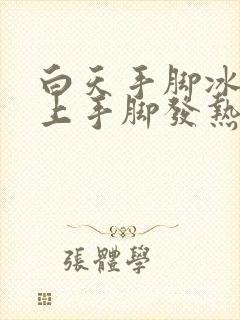 白天手脚冰
上手脚發熱
張體學